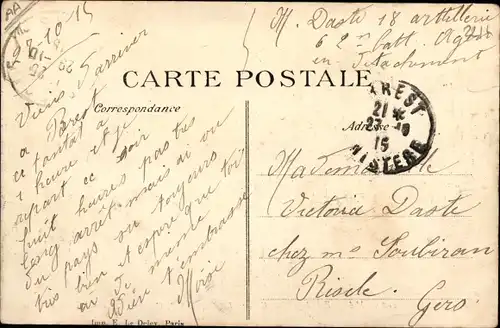 27-10-15
M. Daste 18 artillerie
62e batt. Agen
en Détachement
CARTE POSTALE
Correspondance
Adresse
BREST
21 *
27-10
15
FINISTERE
Viens d'arriver
a Brest
ce tantat a
1 heure et je
repart ce soir
huit heures pas très
long arrêt mais ai vu
du pays toujours
très bien et espère que toi
de meme
Adieu t'embrasse
Mademoiselle
Victoria Daste
chez Mr Soubiran
Riscle
Gers
Imp. E. Le Deley, Paris